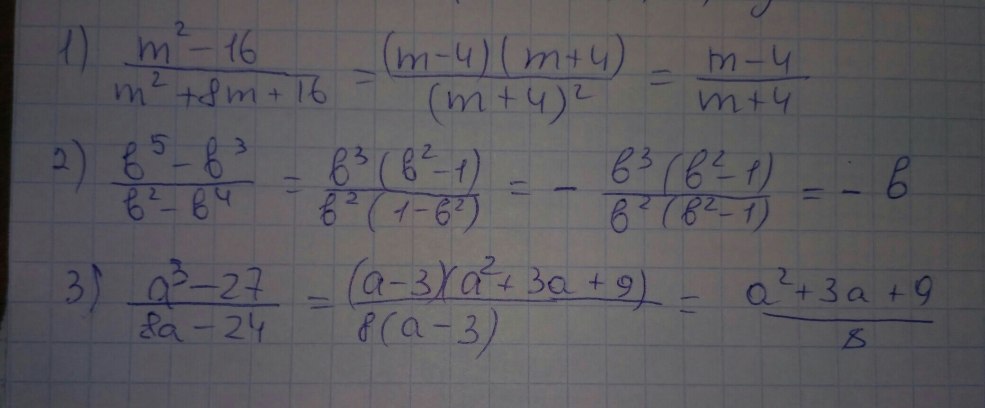 1) \frac{m^2-16}{m^2+8m+16} = \frac{(m-4)(m+4)}{(m+4)^2} = \frac{m-4}{m+4}
2) \frac{в^5-в^3}{в^2-в^4} = \frac{в^3(в^2-1)}{в^2(1-в^2)} = - \frac{в^3(в^2-1)}{в^2(в^2-1)} = - в
3) \frac{a^3-27}{8a-24} = \frac{(a-3)(a^2+3a+9)}{8(a-3)} = \frac{a^2+3a+9}{8}